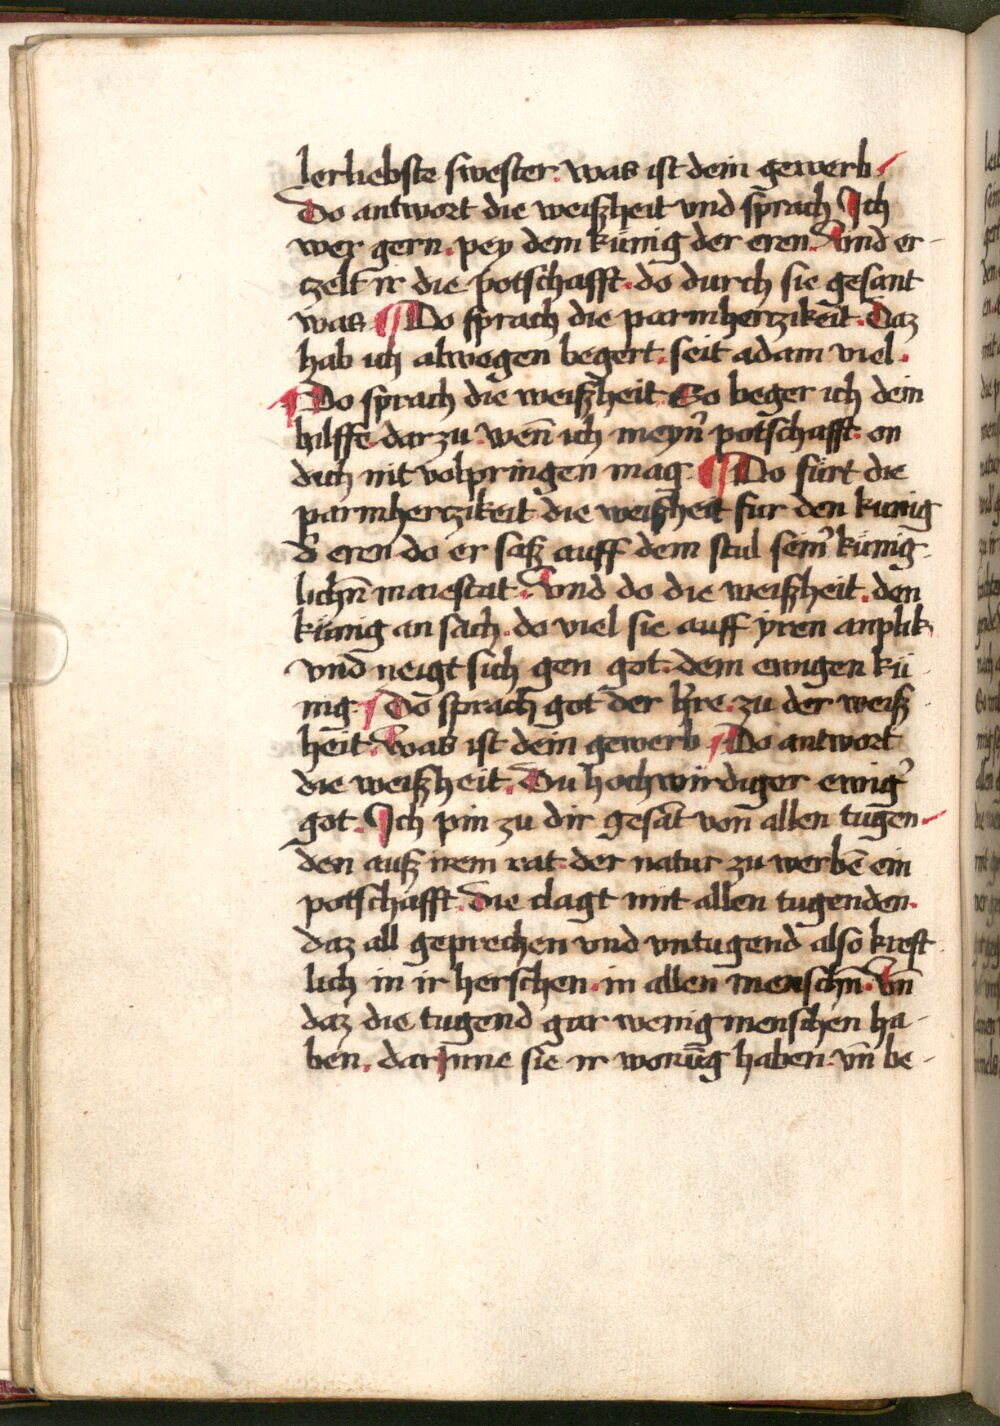 lerliebste swester. was ist dein gewerb
Do antwort die weißheit vnd sprach Ich
wer gern. pey dem künig der eren. Vnd er-
tzelt ir die potschafft. do durch sie gesant
was ¶ Do sprach die parmhertzikeit. Daz
hab ich alwegen begert. seit adam viel.
¶ Do sprach die weißheit. So beger ich dein
hilffe dar zu. weñ ich meyn̄ potschafft. on
dich nit volpringen mag. ¶ Do fürt die
parmhertzikeit die weißheit für den kunig
d̓ eren do er saß auff dem stul sein̓ künig-
lichn̄ maiestat. Vnd do die weißheit. den
künig an sach. do viel sie auff yren anplik
vnd neigt sich gen got. dem ewigen kü-
nig. Do sprach got der h̓re. zu der weiß-
heit. Was ist dein gewerb. Do antwort
die weißheit. Du hochwirdiger ewig̓
got. Ich pin zu dir gesāt von allen tugen-
den auß irem rat. der natur zu werbē ein
potschafft. Die clagt mit allen tugenden.
daz all geprechen vnd vntugend also kreft-
lich in ir herschen. in allen menschn̄. Vn̄
daz die tugend gar wenig menschen ha-
ben. dar Inne sie ir wonūg haben. vn̄ be-